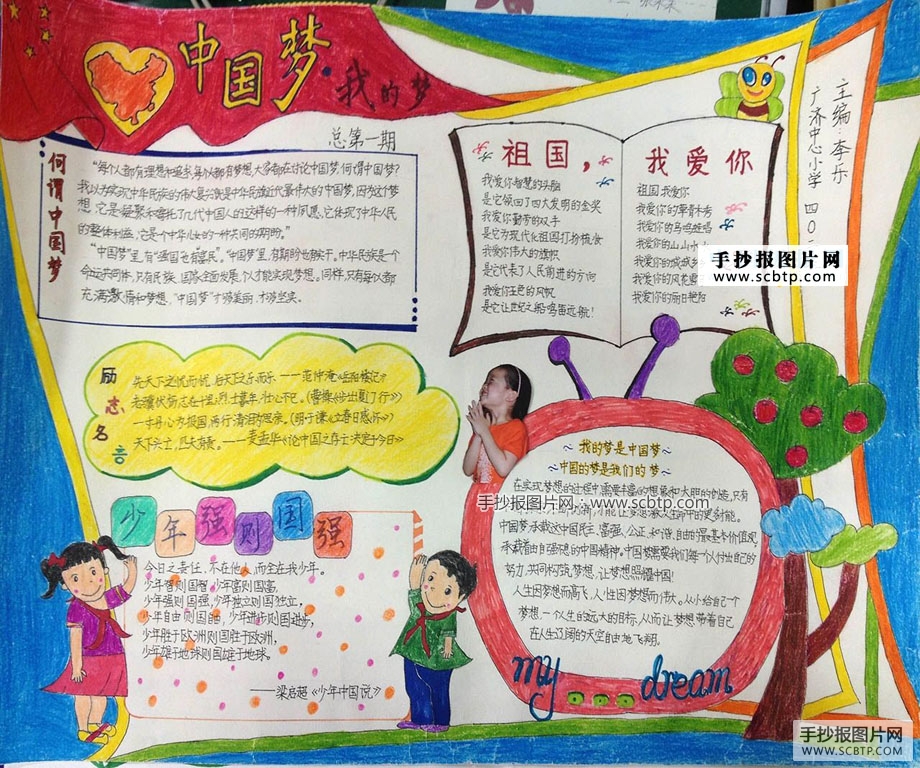 中国梦·我的梦
总第一期
主编:李乐
广济中心小学 四0
何谓中国梦
"每个人都有理想和追求,每个人都有梦想,大家都在讨论中国梦,何谓中国梦?
我以为实现中华民族的伟大复兴就是中华民族近代最伟大的中国梦,因为这个梦
想,它是凝聚和寄托了几代中国人的这样的一种夙愿,它体现了中华人民
的整体利益,它是个中华儿女的一种共同的期盼。"
"中国梦"里,有"强国",也有"富民"。"中国梦"里,有期盼也有实干。中华民族是一个
命运共同体,只有民族、国家全面发展,个人才能实现梦想。同样,只有每个人都
充满激情和梦想,"中国梦"才够美丽,才够坚实。
祖国,
我爱你智慧的头脑
是它领回了四大发明的金奖
我爱你勤劳的双手
是它为现代化祖国打扮梳妆
我爱你伟大的旗帜
是它代表了人民前进的方向
我爱你五色的风帆
是它让世纪之船鸣笛远航!
我爱你
祖国我爱你
我爱你的草青木秀
我爱你的鸟鸣蛙唱
我爱你的山山水
我爱你的
我爱你的风花雪
我爱你的丽日艳阳
手抄报图片网
www.scbtp.com
励志名言
先天下之忧而忧,后天下之乐而乐——范仲淹《岳阳楼记》
老骥伏枥,志在千里;烈士暮年,壮心不已。(曹操《步出夏门行》)
一寸丹心为报国,两行清泪为思亲。(明于谦《立春日感怀》)
天下兴亡,匹夫有责。——麦孟华《论中国之存亡决定于今日》
少年强则国强
今日之责任,不在他人,而全在我少年。
少年智则国智,少年富则国富,
少年强则国强,少年独立则国独立,
少年自由则国自由,少年进步则国进步,
少年胜于欧洲则国胜于欧洲,
少年雄于地球则国雄于地球。
——梁启超《少年中国说》
~我的梦是中国梦~
~中国的梦是我们的梦~
在实现梦想的过程中,需要丰富的想象和大胆的创造,只有
手抄报图片网:www.scbtp.com
才能让梦想激发生命中的更多可能。
中国梦,承载这中国民主、富强、公正、和谐、自由的最基本价值观,
承载着由自强走向自信的中国精神。中国梦需要我们每一个人付出自己的
努力,共同构筑梦想,让梦想照耀中国!
人生因梦想而高飞,人性因梦想而伟大。从小给自己一个
梦想,一个人生的远大的目标,从而让梦想带着自己
在人生辽阔的天空自由地飞翔。
my dream
手抄报图片网
WWW.SCBTP.COM